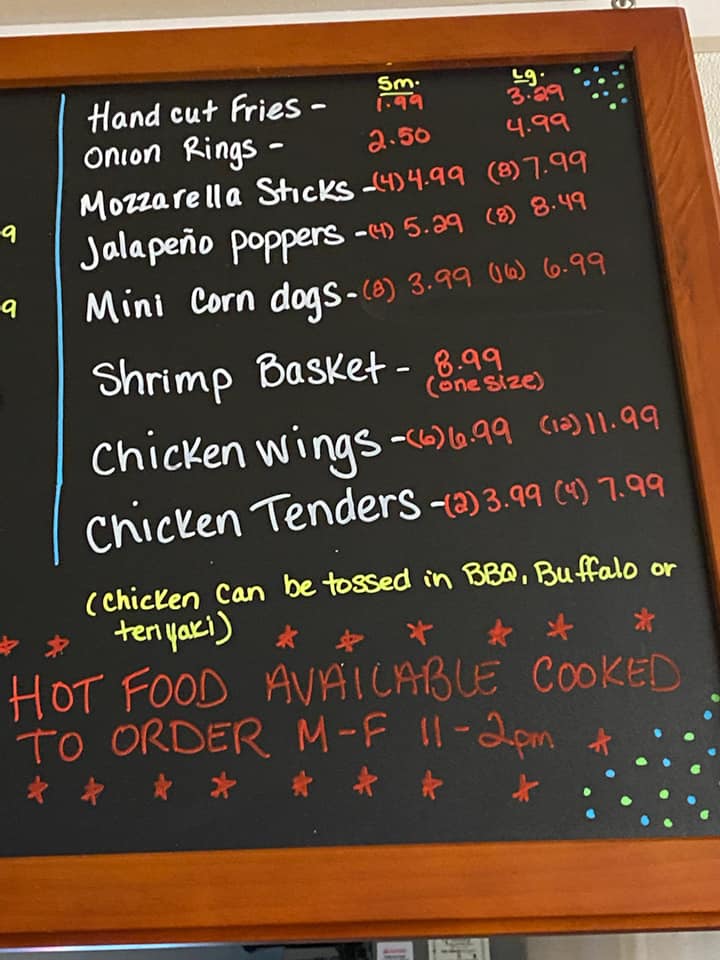 Sm. Lg.
Hand cut Fries - 1.99 3.29
Onion Rings - 2.50 4.99
Mozzarella Sticks - (4) 4.99 (8) 7.99
Jalapeño poppers - (4) 5.29 (8) 8.49
Mini Corn dogs - (8) 3.99 (16) 6.99
Shrimp Basket - 8.99
(one size)
Chicken wings - (6) 6.99 (12) 11.99
Chicken Tenders - (2) 3.99 (4) 7.99
(Chicken Can be tossed in BBQ, Buffalo or
teriyaki)
HOT FOOD AVAILABLE COOKED
TO ORDER M-F 11-2pm
9
9